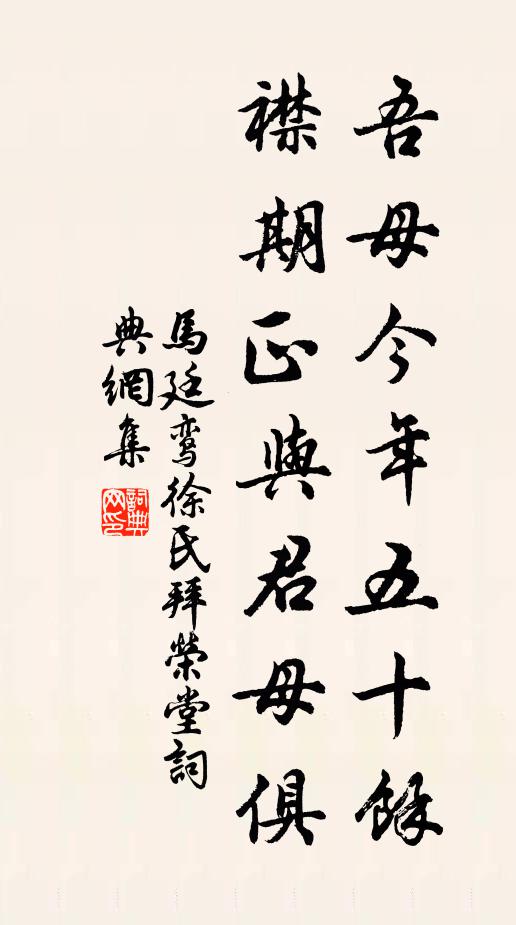 吾母今年五十餘
襟期正與君母俱
馬廷鸾徐氏拜榮堂詞
典網集
詞典网印